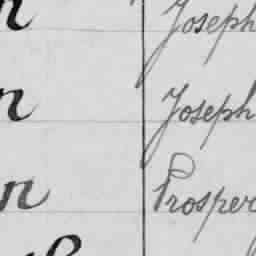 n Joseph
n Joseph
n Prosper